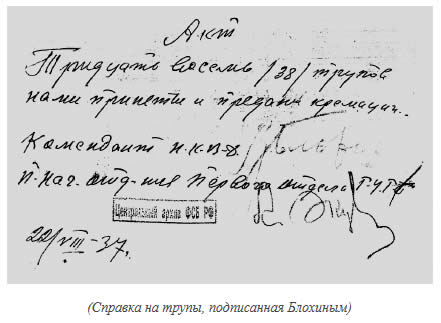 Акт
Тридцать восемь /38/ трупов
нами приняты и преданы кремации.
Комендант Н.К.В.Д.
П. нач. отд-ния первого отдела Г.У.Г.Б.
Центральный архив ФСБ РФ
22/VIII-37.
(Справка на трупы, подписанная Блохиным)